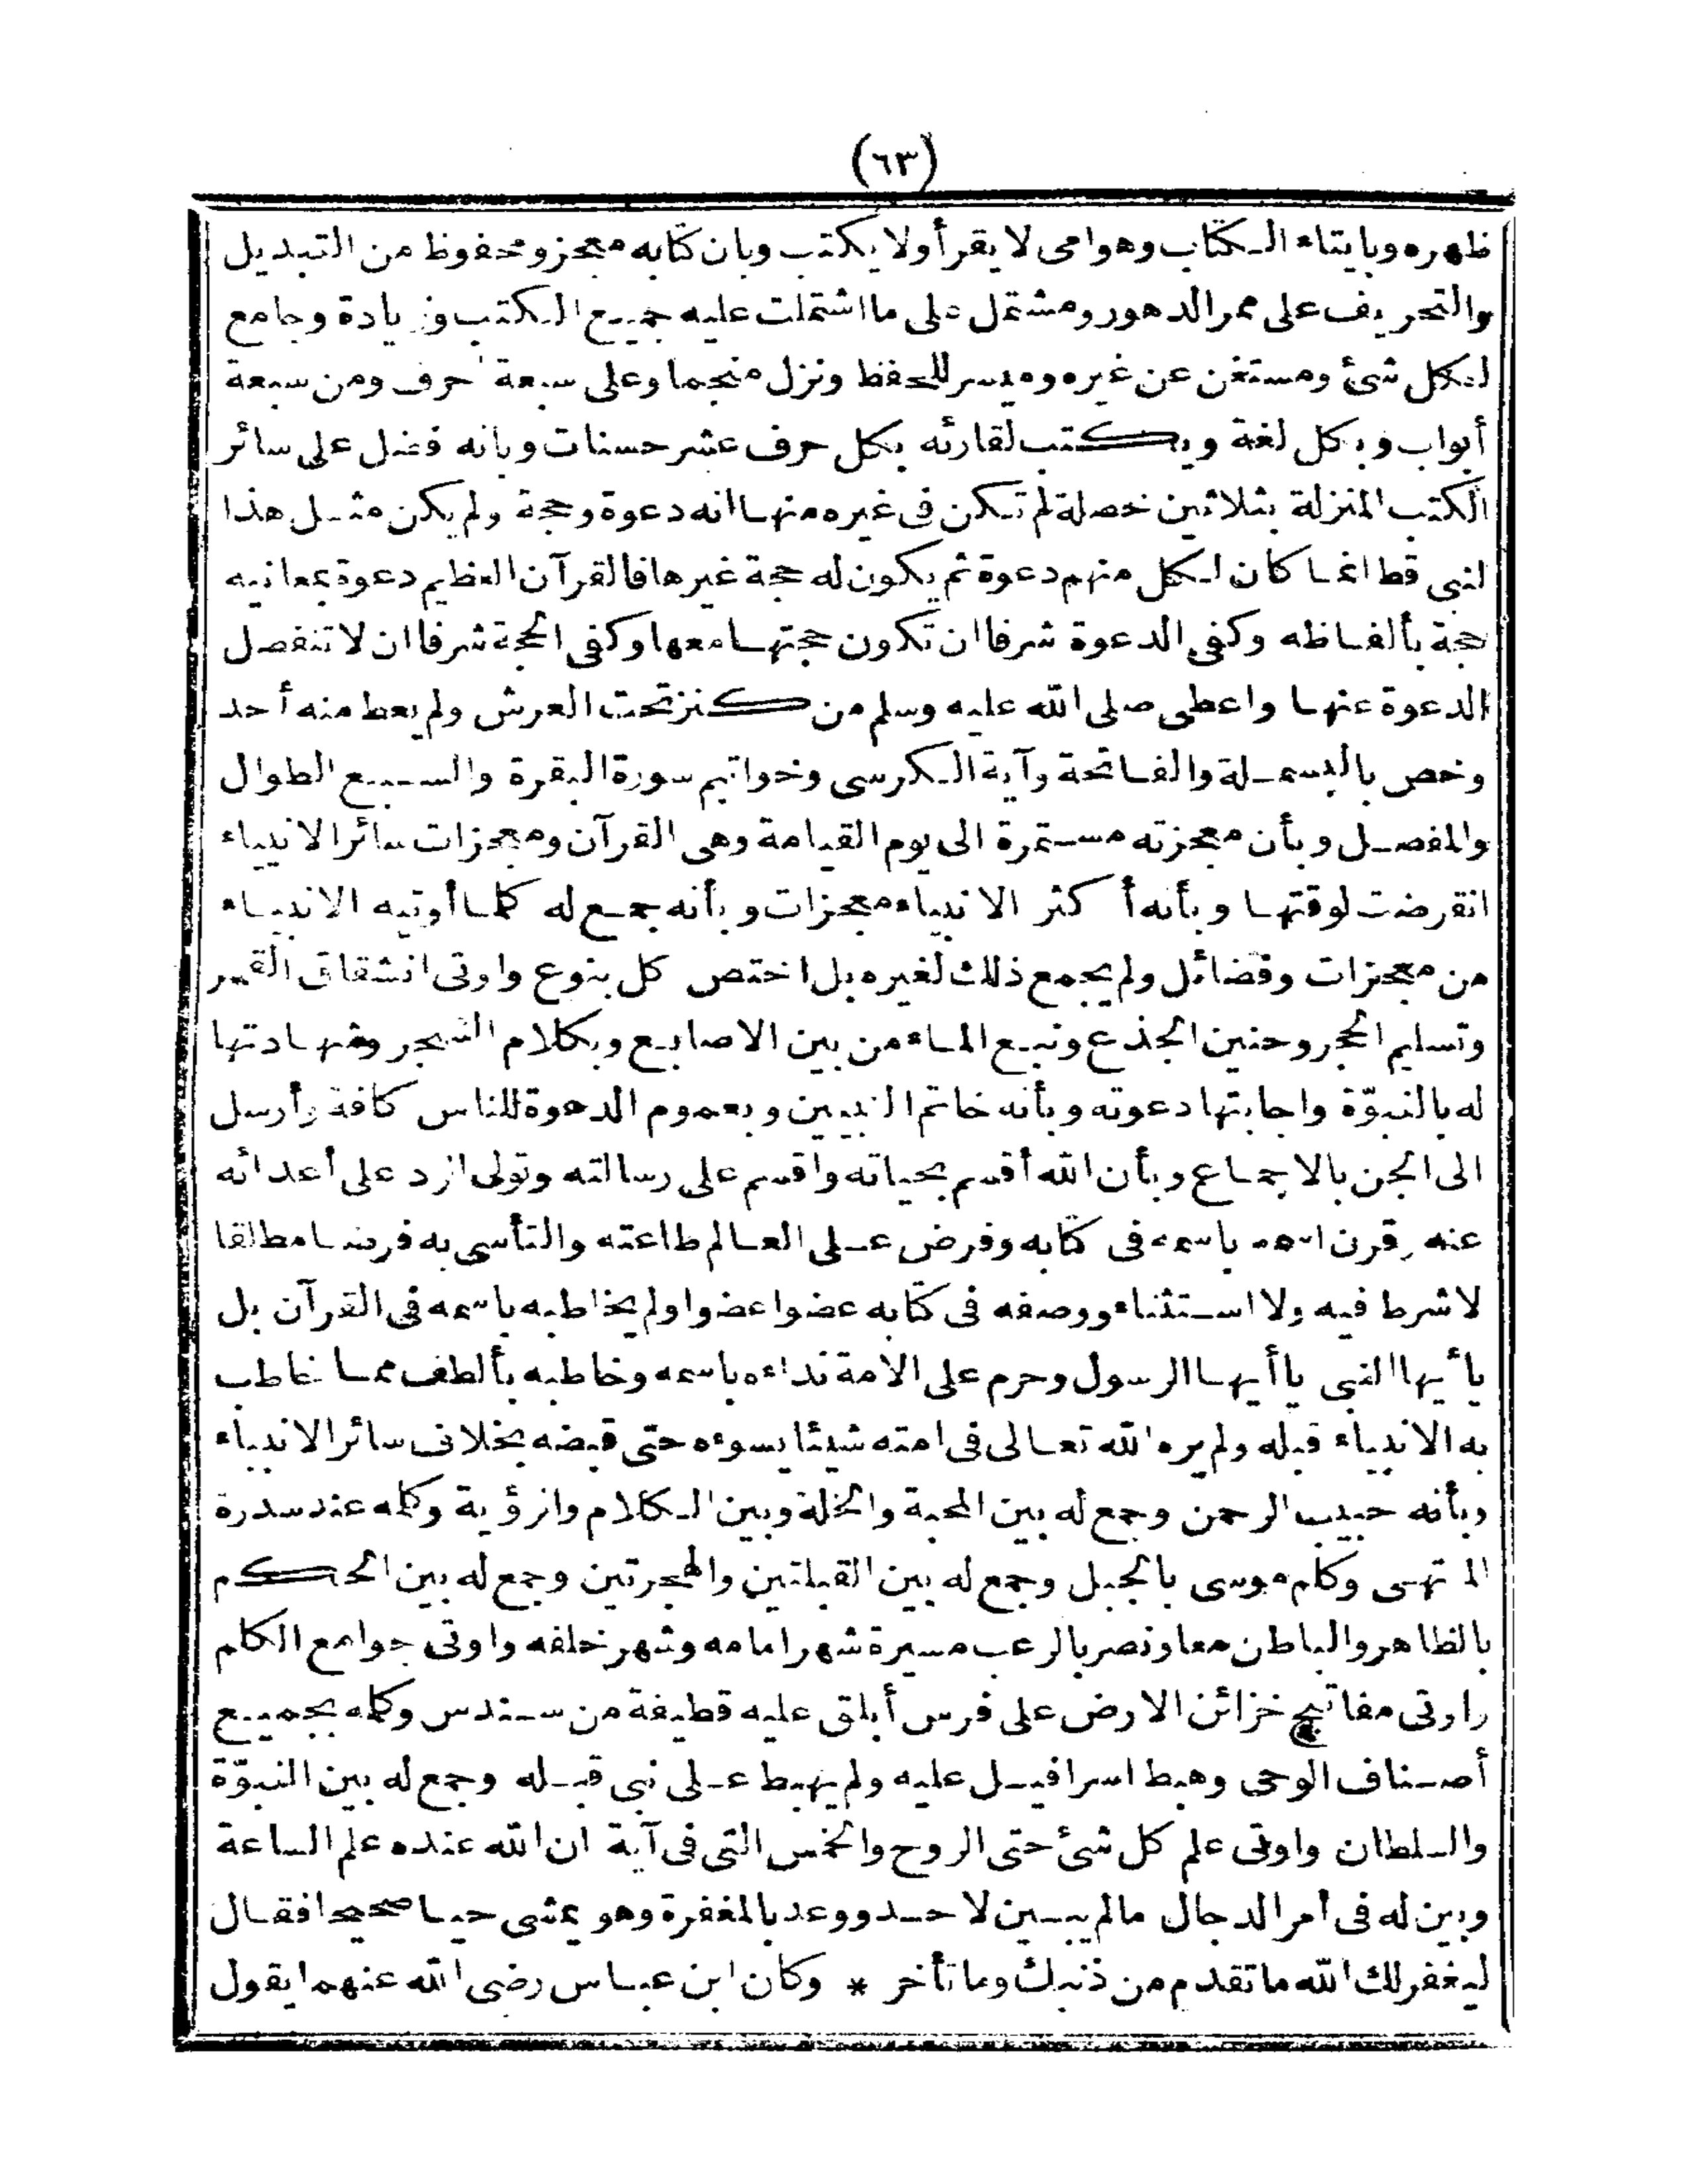 (٦٣)
ظهره وبايتاء الكتاب وهو امى لا يقرأ ولا يكتب وبان كتابه معجز ومحفوظ من التبديل
والتحريف على ممر الدهور ومشتمل على ما اشتملت عليه جميع الكتب وزيادة وجامع
لكل شئ ومستغن عن غيره وميسر للحفظ ونزل منجما وعلى سبعة احرف ومن سبعة
أبواب وبكل لغة ويكتب لقارئه بكل حرف عشر حسنات وبانه فضل على سائر
الكتب المنزلة بثلاثين خصلة لم تكن فى غيره منها انه دعوة وحجة ولم يكن مثل هذا
لنبى قط انما كان لكل منهم دعوة ثم يكون له حجة غيرها فالقرآن العظيم دعوة بمعانيه
حجة بألفاظه وكفى الدعوة شرفا ان تكون حجتها معها وكفى الحجة شرفا ان لا تنفصل
الدعوة عنها واعطى صلى الله عليه وسلم من كنز تحت العرش ولم يعط منه أحد
وخص بالبسملة والفاتحة وآية الكرسى وخواتيم سورة البقرة والسبع الطوال
والمفصل وبأن معجزته مستمرة الى يوم القيامة وهى القرآن ومعجزات سائر الانبياء
انقرضت لوقتها وبأنه أكثر الانبياء معجزات وبأنه جمع له كلما أوتيه الانبياء
من معجزات وفضائل ولم يجمع ذلك لغيره بل اختص كل بنوع واوتى انشقاق القمر
وتسليم الحجر وحنين الجذع ونبع الماء من بين الاصابع وبكلام الشجر وشهادتها
له بالنبوّة واجابتها دعوته وبأنه خاتم النبيين وبعموم الدعوة للناس كافة وأرسل
الى الجن بالاجماع وبأن الله أقسم بحياته واقسم على رسالته وتولى الرد على أعدائه
عنه وقرن اسمه باسمه فى كتابه وفرض على العالم طاعته والتأسى به فرضا مطلقا
لا شرط فيه ولا استثناء ووصفه فى كتابه عضوا عضوا ولم يخاطبه باسمه فى القرآن بل
يا أيها النبى يا أيها الرسول وحرم على الامة نداءه باسمه وخاطبه بألطف مما خاطب
به الانبياء قبله ولم يره الله تعالى فى امته شيئا يسوءه حتى قبضه بخلاف سائر الانبياء
وبأنه حبيب الرحمن وجمع له بين المحبة والخلة وبين الكلام والرؤية وكلمه عند سدرة
المنتهى وكلم موسى بالجبل وجمع له بين القبلتين والهجرتين وجمع له بين الحكم
بالظاهر والباطن معا ونصر بالرعب مسيرة شهر امامه وشهر خلفه واوتى جوامع الكلم
واوتى مفاتيح خزائن الارض على فرس أبلق عليه قطيفة من سندس وكلمه بجميع
أصناف الوحى وهبط اسرافيل عليه ولم يهبط على نبى قبله وجمع له بين النبوّة
والسلطان واوتى علم كل شئ حتى الروح والخمس التى فى آية ان الله عنده علم الساعة
وبين له فى أمر الدجال مالم يبين لاحد ووعد بالمغفرة وهو يمشى حيا صحيحا فقال
ليغفر لك الله ما تقدم من ذنبك وما تأخر * وكان ابن عباس رضى الله عنهما يقول